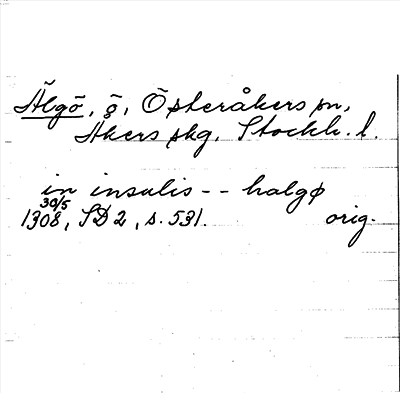 Älgö, ö, Österåkers sn,
Åkers skg, Stockh. l.
in insulis -- halgø
30/5
1308, SD 2, s. 531. orig.